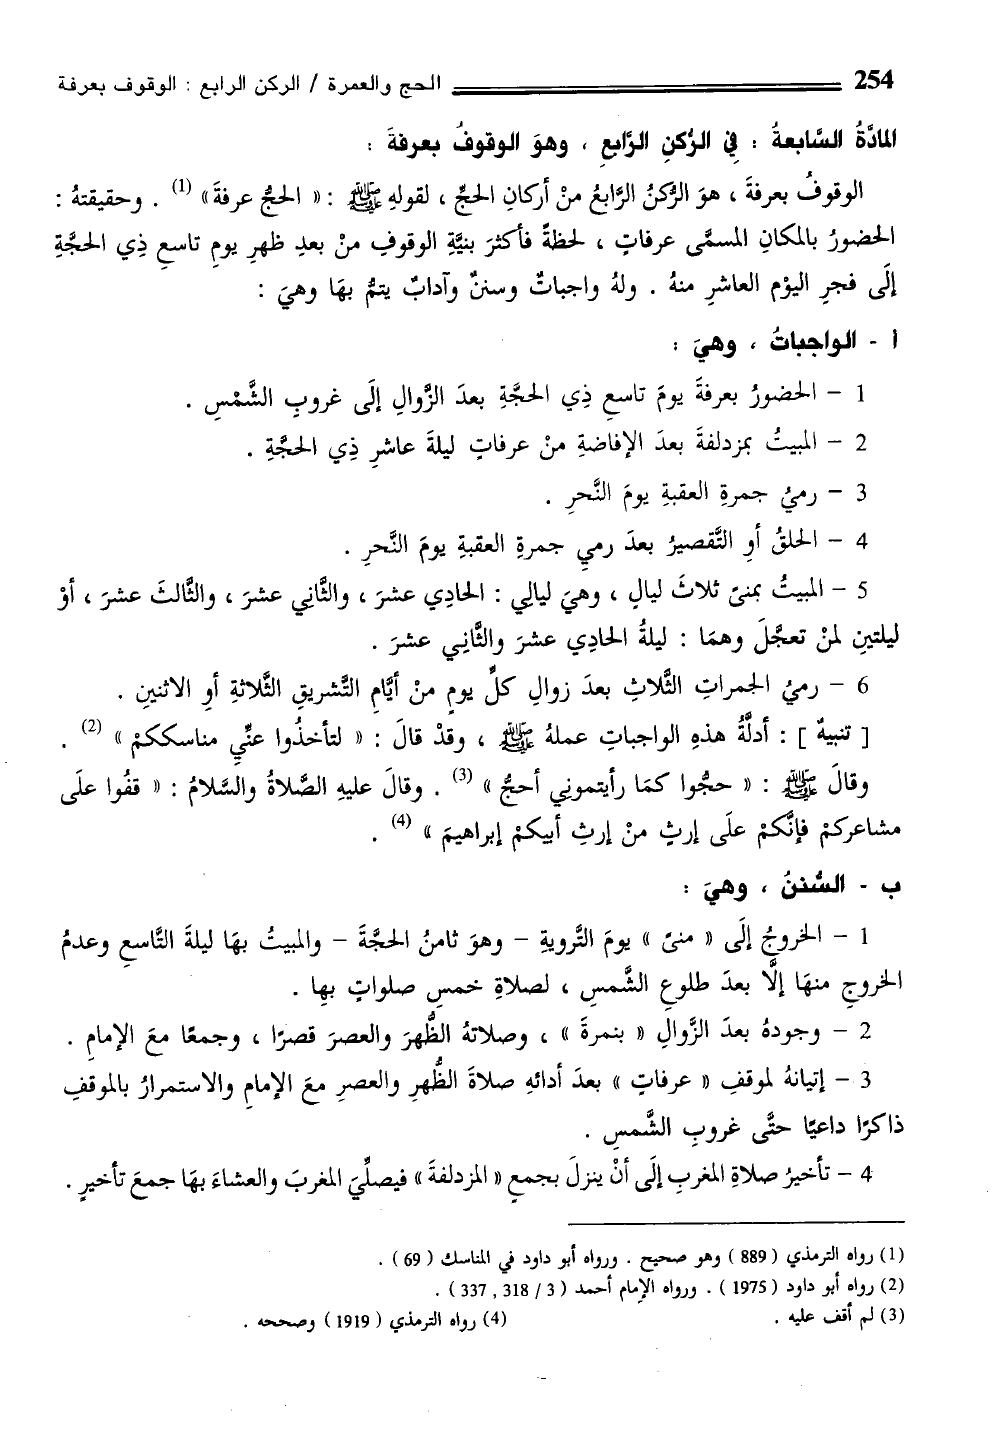 254 الحج والعمرة / الركن الرابع : الوقوف بعرفة
المادَّةُ السَّابعةُ : في الرُّكنِ الرَّابعِ ، وهوَ الوقوفُ بعرفةَ :
الوقوفُ بعرفةَ ، هوَ الرُّكنُ الرَّابعُ منْ أركانِ الحجِّ ، لقولهِ ﷺ : « الحجُّ عرفةَ » (1) . وحقيقتهُ :
الحضورُ بالمكانِ المسمَّى عرفاتٍ ، لحظةً فأكثرَ بنيَّةِ الوقوفِ منْ بعدِ ظهرِ يومِ تاسعِ ذِي الحجَّةِ
إلَى فجرِ اليوْمِ العاشرِ منهُ . ولهُ واجباتٌ وسننٌ وآدابٌ يتمُّ بهَا وهيَ :
أ - الواجباتُ ، وهيَ :
1 – الحضورُ بعرفةَ يومَ تاسعِ ذِي الحجَّةِ بعدَ الزَّوالِ إلَى غروبِ الشَّمْسِ .
2 – المبيتُ بمزدلفةَ بعدَ الإفاضةِ منْ عرفاتٍ ليلةَ عاشرِ ذِي الحجَّةِ .
3 – رميُ جمرةِ العقبةِ يومَ النَّحرِ .
4 – الحلقُ أوِ التَّقصيرُ بعدَ رميِ جمرةِ العقبةِ يومَ النَّحرِ .
5 – المبيتُ بمنىً ثلاثَ ليالٍ ، وهيَ ليالِي : الحادِي عشرَ ، والثَّانِي عشرَ ، والثَّالثَ عشرَ ، أوْ
ليلتينِ لمنْ تعجَّلَ وهمَا : ليلةُ الحادِي عشرَ والثَّانِي عشرَ .
6 – رميُ الجمراتِ الثَّلاثِ بعدَ زوالِ كلِّ يومٍ منْ أيَّامِ التَّشريقِ الثَّلاثةِ أوِ الاثنينِ .
[ تنبيهٌ ] : أدلَّةُ هذهِ الواجباتِ عملهُ ﷺ ، وقدْ قالَ : « لتأخذُوا عنِّي مناسككمْ » (2) .
وقالَ ﷺ : « حجُّوا كمَا رأيتمونِي أحجُّ » (3) . وقالَ عليهِ الصَّلاةُ والسَّلامُ : « قفُوا علَى
مشاعركمْ فإنَّكمْ علَى إرثٍ منْ إرثِ أبيكمْ إبراهيمَ » (4) .
ب - السُّننُ ، وهيَ :
1 – الخروجُ إلَى « منىً » يومَ التَّرويةِ – وهوَ ثامنُ الحجَّةَ – والمبيتُ بهَا ليلةَ التَّاسعِ وعدمُ
الخروجِ منهَا إلَّا بعدَ طلوعِ الشَّمسِ ، لصلاةِ خمسِ صلواتٍ بهِا .
2 – وجودهُ بعدَ الزَّوالِ « بنمرةَ » ، وصلاتهُ الظُّهرَ والعصرَ قصرًا ، وجمعًا معَ الإمامِ .
3 – إتيانهُ لموقفِ « عرفاتٍ » بعدَ أدائهِ صلاةَ الظُّهرِ والعصرِ معَ الإمامِ والاستمرارُ بالموقفِ
ذاكرًا داعيًا حتَّى غروبِ الشَّمسِ .
4 – تأخيرُ صلاةِ المغربِ إلَى أنْ ينزلَ بجمعٍ « المزدلفةَ » فيصلِّيَ المغربَ والعشاءَ بهَا جمعَ تأخيرٍ .
(1) رواه الترمذي ( 889 ) وهو صحيح . ورواه أبو داود في المناسك ( 69 ) .
(2) رواه أبو داود ( 1975 ) . ورواه الإمام أحمد ( 3 / 318 , 337 ) .
(3) لم أقف عليه . (4) رواه الترمذي ( 1919 ) وصححه .